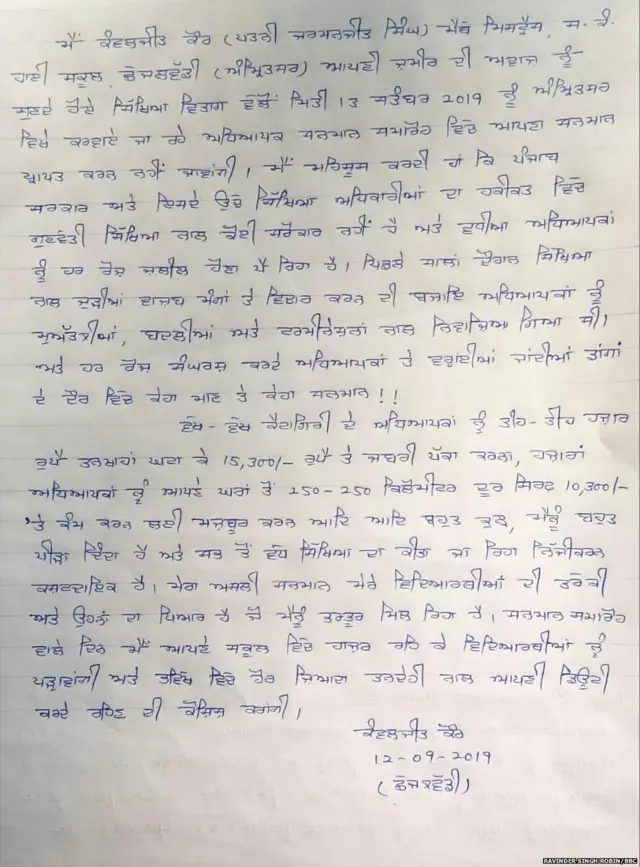 ਮੈਂ ਕੰਵਲਜੀਤ ਕੌਰ (ਪਤਨੀ ਜਰਮਨਜੀਤ ਸਿੰਘ) ਮੈਥ ਮਿਸਟ੍ਰੈਸ, ਸ. ਕੰ.
ਹਾਈ ਸਕੂਲ, ਛੇਜਲਵੱਡੀ (ਅੰਮ੍ਰਿਤਸਰ) ਆਪਣੀ ਜ਼ਮੀਰ ਦੀ ਅਵਾਜ਼ ਨੂੰ
ਸੁਣਦੇ ਹੋਏ ਸਿੱਖਿਆ ਵਿਭਾਗ ਵੱਲੋਂ ਮਿਤੀ 13 ਸਤੰਬਰ 2019 ਨੂੰ ਅੰਮ੍ਰਿਤਸਰ
ਵਿਖੇ ਕਰਵਾਏ ਜਾ ਰਹੇ ਅਧਿਆਪਕ ਸਨਮਾਨ ਸਮਾਰੋਹ ਵਿੱਚ ਆਪਣਾ ਸਨਮਾਨ
ਪ੍ਰਾਪਤ ਕਰਨ ਨਹੀਂ ਜਾਵਾਂਗੀ। ਮੈਂ ਮਹਿਸੂਸ ਕਰਦੀ ਹਾਂ ਕਿ ਪੰਜਾਬ
ਸਰਕਾਰ ਅਤੇ ਇਸਦੇ ਉੱਚ ਸਿੱਖਿਆ ਅਧਿਕਾਰੀਆਂ ਦਾ ਹਕੀਕਤ ਵਿੱਚ
ਗੁਣਵੰਤੀ ਸਿੱਖਿਆ ਨਾਲ ਕੋਈ ਸਰੋਕਾਰ ਨਹੀਂ ਹੈ ਅਤੇ ਵਧੀਆ ਅਧਿਆਪਕਾਂ
ਨੂੰ ਹਰ ਰੋਜ਼ ਜ਼ਲੀਲ ਹੋਣਾ ਪੈ ਰਿਹਾ ਹੈ। ਪਿਛਲੇ ਸਾਲਾਂ ਦੌਰਾਨ ਸਿੱਖਿਆ
ਨਾਲ ਜੁੜੀਆਂ ਵਾਜਬ ਮੰਗਾਂ ਤੇ ਵਿਚਾਰ ਕਰਨ ਦੀ ਬਜਾਇ ਅਧਿਆਪਕਾਂ ਨੂੰ
ਮੁਅੱਤਲੀਆਂ, ਬਦਲੀਆਂ ਅਤੇ ਟਰਮੀਨੇਸ਼ਨਾਂ ਨਾਲ ਨਿਵਾਜਿਆ ਗਿਆ ਸੀ।
ਅਤੇ ਹਰ ਰੋਜ਼ ਸੰਘਰਸ਼ ਕਰਦੇ ਅਧਿਆਪਕਾਂ ਤੇ ਵਰ੍ਹਾਈਆਂ ਜਾਂਦੀਆਂ ਡਾਂਗਾਂ
ਦੇ ਦੌਰ ਵਿੱਚ ਕੇਹਾ ਮਾਣ ਤੇ ਕੇਹਾ ਸਨਮਾਨ!!
ਵੱਖ-ਵੱਖ ਕੈਟਾਗਿਰੀ ਦੇ ਅਧਿਆਪਕਾਂ ਨੂੰ ਤੀਹ-ਤੀਹ ਹਜ਼ਾਰ
ਰੁਪੈ ਤਨਖਾਹਾਂ ਘਟਾ ਕੇ 15,300/- ਰੁਪੈ ਤੇ ਜਬਰੀ ਪੱਕਾ ਕਰਨਾ, ਹਜ਼ਾਰਾਂ
ਅਧਿਆਪਕਾਂ ਨੂੰ ਆਪਣੇ ਘਰਾਂ ਤੋਂ 250-250 ਕਿਲੋਮੀਟਰ ਦੂਰ ਸਿਰਫ਼ 10,300/-
'ਤੇ ਕੰਮ ਕਰਨ ਲਈ ਮਜਬੂਰ ਕਰਨ ਆਦਿ ਆਦਿ ਬਹੁਤ ਕੁਝ, ਮੈਨੂੰ ਬਹੁਤ
ਪੀੜਾ ਦਿੰਦਾ ਹੈ ਅਤੇ ਸਭ ਤੋਂ ਵੱਧ ਸਿੱਖਿਆ ਦਾ ਕੀਤਾ ਜਾ ਰਿਹਾ ਨਿੱਜੀਕਰਨ
ਕਸ਼ਟਦਾਇਕ ਹੈ। ਮੇਰਾ ਅਸਲੀ ਸਨਮਾਨ ਮੇਰੇ ਵਿਦਿਆਰਥੀਆਂ ਦੀ ਤਰੱਕੀ
ਅਤੇ ਉਹਨਾਂ ਦਾ ਪਿਆਰ ਹੈ ਜੋ ਮੈਨੂੰ ਭਰਭੂਰ ਮਿਲ ਰਿਹਾ ਹੈ। ਸਨਮਾਨ ਸਮਾਰੋਹ
ਵਾਲੇ ਦਿਨ ਮੈਂ ਆਪਣੇ ਸਕੂਲ ਵਿੱਚ ਹਾਜ਼ਰ ਰਹਿ ਕੇ ਵਿਦਿਆਰਥੀਆਂ ਨੂੰ
ਪੜ੍ਹਾਵਾਂਗੀ ਅਤੇ ਭਵਿੱਖ ਵਿੱਚ ਹੋਰ ਜ਼ਿਆਦਾ ਤਨਦੇਹੀ ਨਾਲ ਆਪਣੀ ਡਿਊਟੀ
ਕਰਦੇ ਰਹਿਣ ਦੀ ਕੋਸ਼ਿਸ਼ ਕਰਾਂਗੀ।
ਕੰਵਲਜੀਤ ਕੌਰ
12-09-2019
(ਛੇਜਲਵੱਡੀ)
RAVINDER SINGH ROBIN/BBC